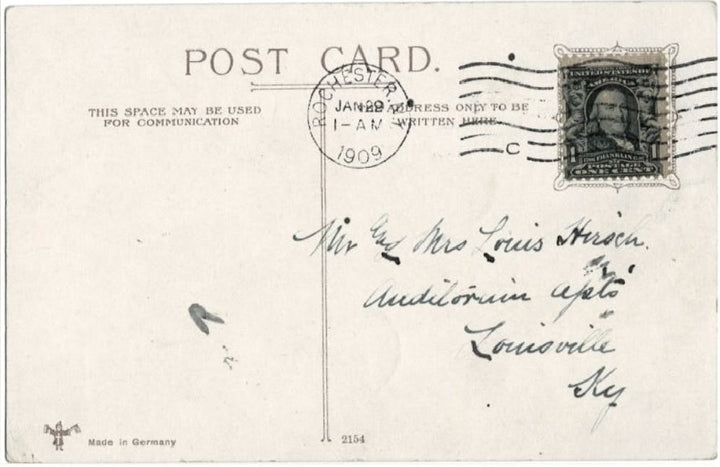 POST CARD.
THIS SPACE MAY BE USED
FOR COMMUNICATION
THE ADDRESS ONLY TO BE
WRITTEN HERE
ROCHESTER
JAN 29
1-AM
1909
C
UNITED STATES OF
AMERICA
FRANKLIN
POSTAGE
ONE CENT
Mr & Mrs Louis Hirsch.
Auditorium apts
Louisville
Ky
Made in Germany
2154